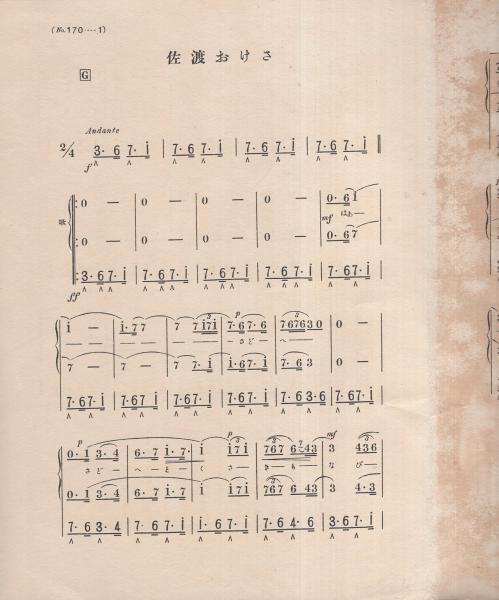 (No.170‥‥1)
佐渡おけさ
G
Andante
2/4 3· 6 7· i | 7· 6 7· i | 7· 6 7· i | 7· 6 7· i
f
歌 0 — 0 — 0 — 0 — 0· 6 i
mf はぁ—
0 — 0 — 0 — 0 — 0· 6 7
3· 6 7· i | 7· 6 7· i | 7· 6 7· i | 7· 6 7· i | 7· 6 7· i
ff
i — | i· 7 7 | 7 7 i 7 i | 7· 6 7· 6 | 7 6 7 6 3 0 | 0 —
— さど — へ —
7 — 7 — 7 7· i | i· 6 7· i | 7· 6 3 | 0 —
7· 6 7· i | 7· 6 7 i | 7· 6 7· i | 7· 6 7· i | 7· 6 3· 6 | 7· 6 7· i
p p mf
0· 1 3· 4 | 6· 7 i· 7· | i i 7 i | 7 6 7 6 4 3 | 3 4 3 6
さ ど — へ — と
0· 1 3· 4 | 6· 7 i· 7 | i i 7 i | 7 6 7 6 4 3 | 3 4· 3
7· 6 3· 4 | 7· 6 7· i | i· 6 7· i | 7· 6 4· 6 | 3· 6 7· i